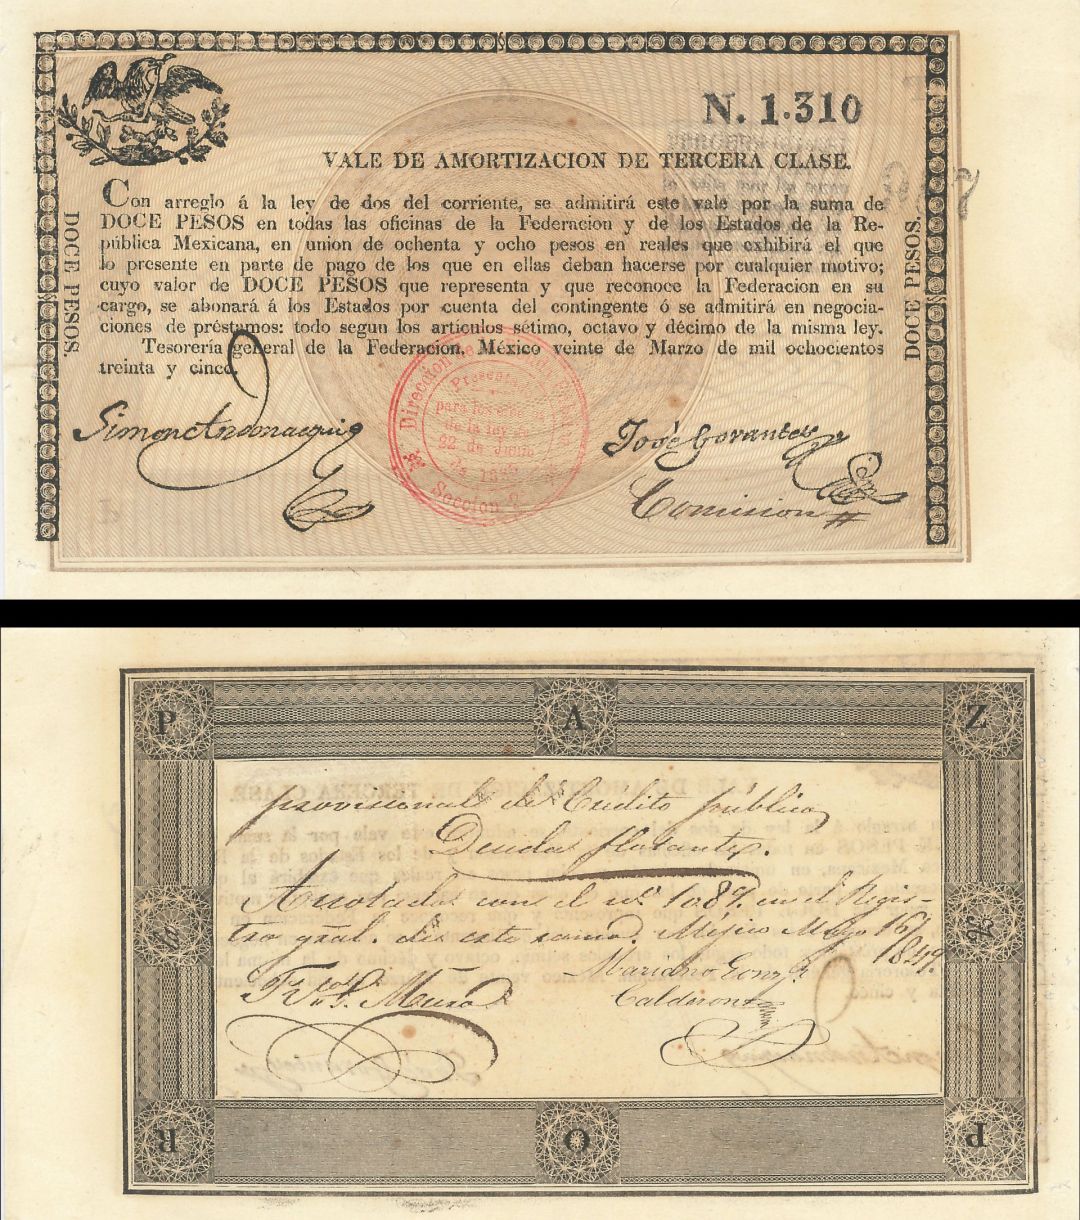 N. 1.310
VALE DE AMORTIZACION DE TERCERA CLASE.
Con arreglo á la ley de dos del corriente, se admitirá este vale por la suma de
DOCE PESOS en todas las oficinas de la Federacion y de los Estados de la Re-
pública Mexicana, en union de ochenta y ocho pesos en reales que exhibirá el que
lo presente en parte de pago de los que en ellas deban hacerse por cualquier motivo;
cuyo valor de DOCE PESOS que representa y que reconoce la Federacion en su
cargo, se abonará á los Estados por cuenta del contingente ó se admitirá en negocia-
ciones de préstumos: todo segun los artículos sétimo, octavo y décimo de la misma ley.
Tesorería general de la Federacion, México veinte de Marzo de mil ochocientos
treinta y cinco.
DOCE PESOS.
DOCE PESOS.
Direccion
Presentado
para los
de la ley de
22 de Junio
de
Seccion 2ª
José Govantes
Comision
P A Z
provisional de Credito público
Deuda flotante.
Anotado con el nº 1089 en el Regis-
tro gral. de este ramo. Méjico Mayo 16/
1849.
Mariano Gonz
Calderon
R O P